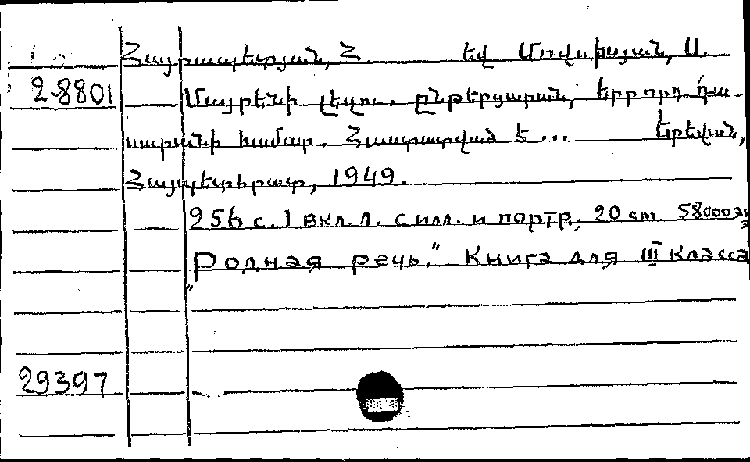 Հայրապետյան, Հ. եվ Մովսիսյան, Ա.
2-8801
Մայրենի լեզու. ընթերցարան, երրորդ դա-
սարանի համար. Հաստատված է ... Երեվան,
Հայպետհրատ, 1949.
256 с. 1 вкл. л. с илл. и портр., 20 см 58000 экз
„Родная речь." Книга для III класса
29397